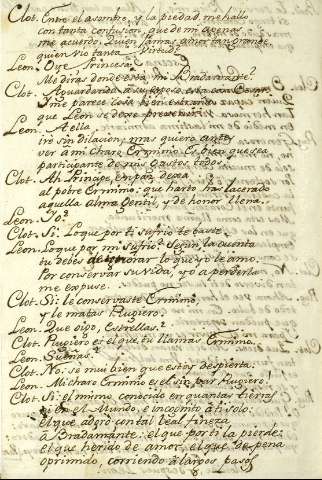 Clot. Entre el asombro, y la piedad, me hallo
con tanta confusion, que de mi apenas
me acuerdo. Quien jamas amor tan grande
quien vio tanta Virtud!
Leon. Oye Princesa:
Me dirás donde está mi Bradamante?
Clot. Aguardando a su esposo está con Cesar:
me parece cosa bien estraña
que Leon se dexe prevenir.
Leon. A ella
iré sin dilacion, mas quiero antes
ver à mi Charo Erminio. Es bien que sea
participante de mis Gustos todos.
Clot. Ah Principe, en paz dexa
al pobre Erminio: que harto has lacerado
aquella Alma Gentil, y de honor llena.
Leon. Yo?
Clot. Si: Lo que por ti sufrio te baste.
Leon. Lo que por mi sufrio? Segun la cuenta
tu debes de ignorar lo que yo le amo.
Por conservar su vida, yo a perderla
me expuse.
Clot. Si: le conservaste Erminio,
y le matas Rugiero.
Leon. Que oigo, Estrellas?
Clot. Rugiero es el que tu llamas Erminio.
Leon. Sueñas?
Clot. No: sé mui bien que estoy despierta.
Leon. Mi charo Erminio es el sin par Rugiero!
Clot. Si: el mismo, conocido en quantas tierras
en el Mundo, e incognito a ti solo:
el que adoró con tal beal fineza
a Bradamante: el que por ti la pierde:
el que herido de amor, el que de pena
oprimido, corriendo à largos pasos